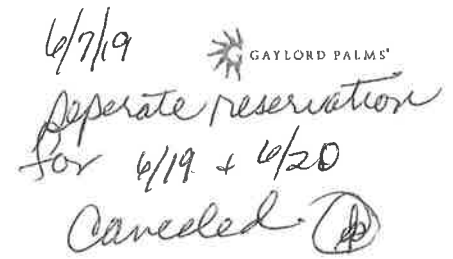 6/7/19
GAYLORD PALMS®
Seperate reservation
for 6/19 + 6/20
Canceled.